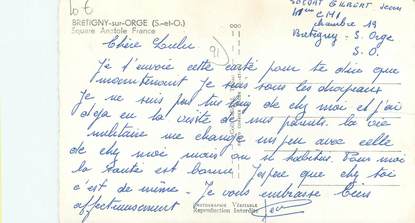 10€
BRETIGNY-sur-ORGE (S.-et-O.)
Square Anatole France
91
SOLDAT GILBERT Jean
CMI
chambre 19
Bretigny - S. Orge
S. O.
Chère Lulu
Je t'envoie cette carte pour te dire que
maintenant je suis sous les drapeaux
Je ne suis pas très loin de chez moi et j'ai
déjà eu la visite de mes parents. la vie
militaire me change un peu avec celle
de chez moi mais on s'y habitue. Pour moi
la santé est bonne. J'espère que chez toi
c'est de même. Je vous embrasse bien
affectueusement
PHOTOGRAPHIE VÉRITABLE
Reproduction Interdite
Jean